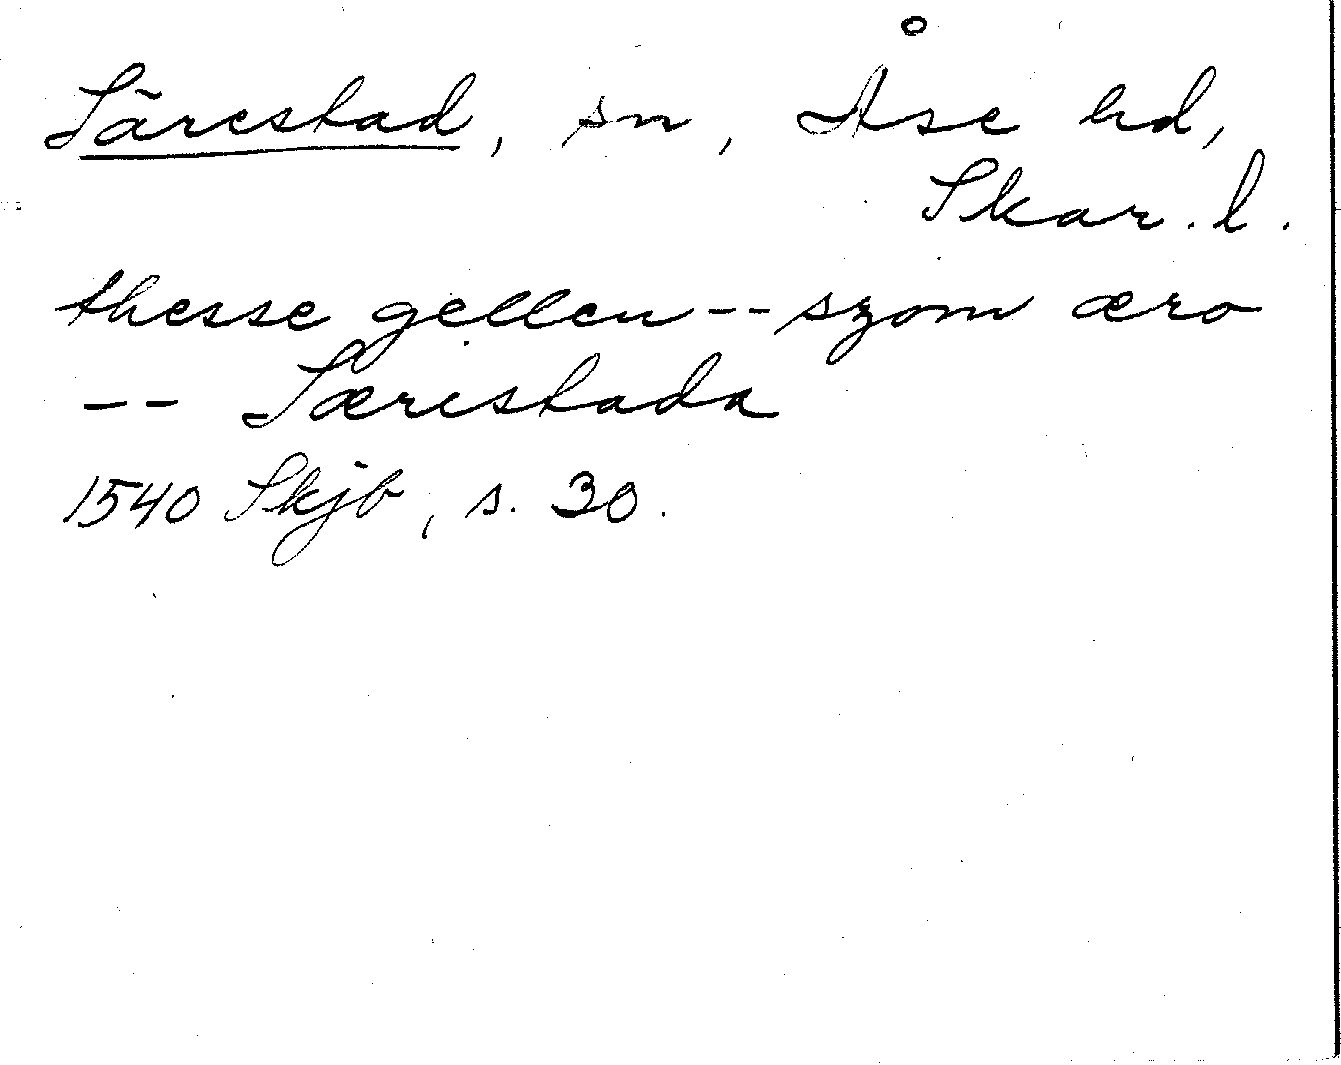 Särestad, sn, Åse hd,
Skar. l.
thesse gellen -- szom æro
-- Særestada
1540 Skjb, s. 30.